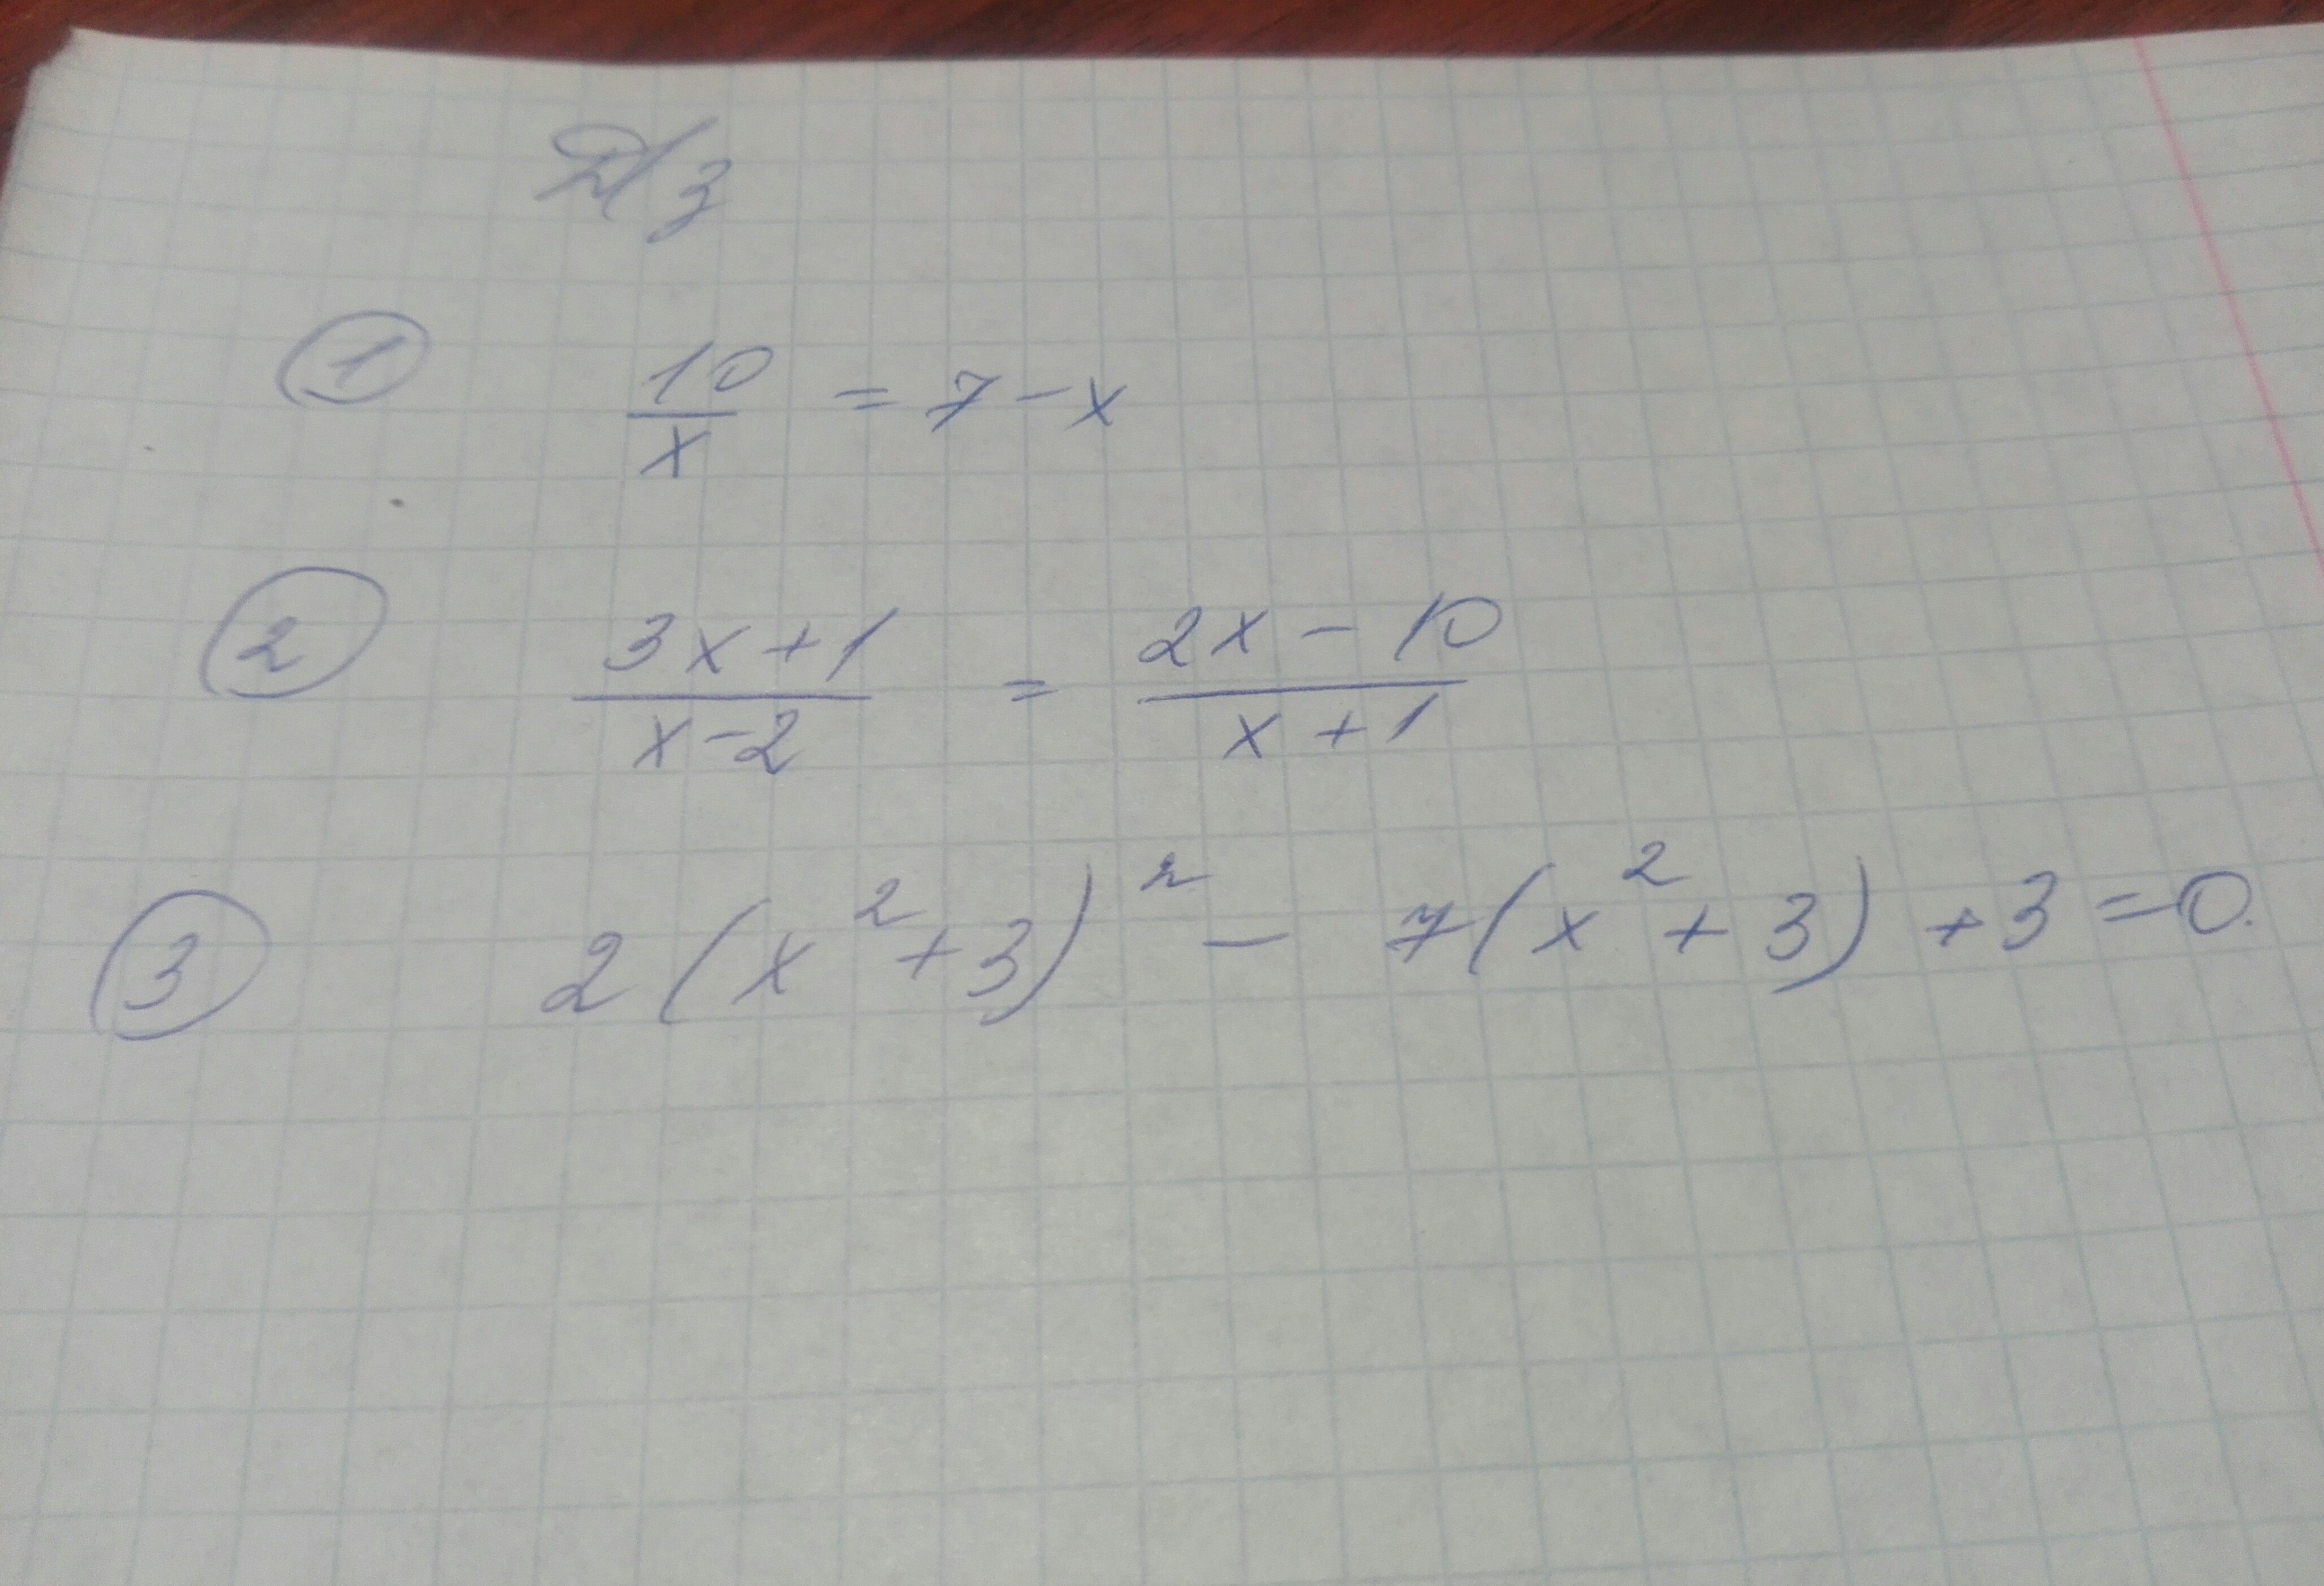 Д/з
① 10/x = 7 - x
② (3x+1)/(x-2) = (2x-10)/(x+1)
③ 2(x²+3)² - 7(x²+3)+3=0.